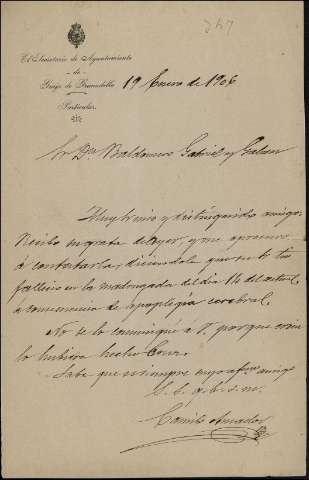 247
El Secretario de Ayuntamiento
de
Guijo de Granadilla
Particular
19 Enero de 1906
Sr Dn Baldomero Gabriel y Galan
Muy mio y distinguido amigo:
Recibo su grata de ayer, y me apresuro
á contestarla, diciendole que su tio
falleció en la madrugada del dia 14 del actual
á consecuencia de apoplegia cerebral.
No se lo comuniqué á V. porque creia
lo hubiera hecho
Sabe que es siempre suyo afmo amigo
q. b. s. m.
Camilo Amador